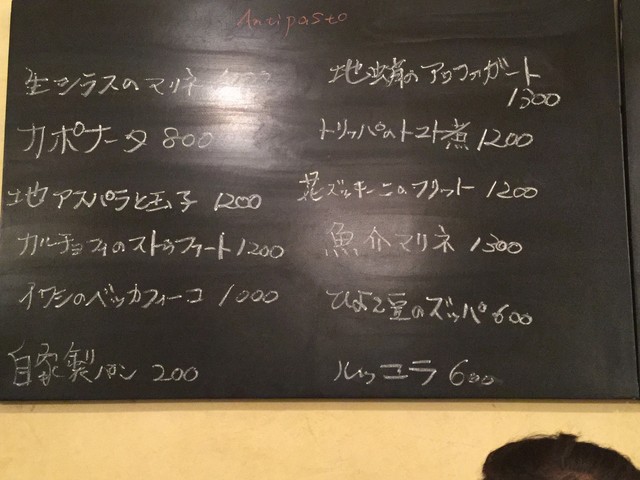 Antipasto
生シラスのマリネ
カポナータ 800
地アスパラと玉子 1200
カルチョフィのストゥファート 1200
イワシのベッカフィーコ 1000
自家製パン 200
地蛸のアッフォガート
1300
トリッパのトマト煮 1200
花ズッキーニのフリット 1200
魚介マリネ 1300
ひよこ豆のズッパ 600
ルッコラ 600